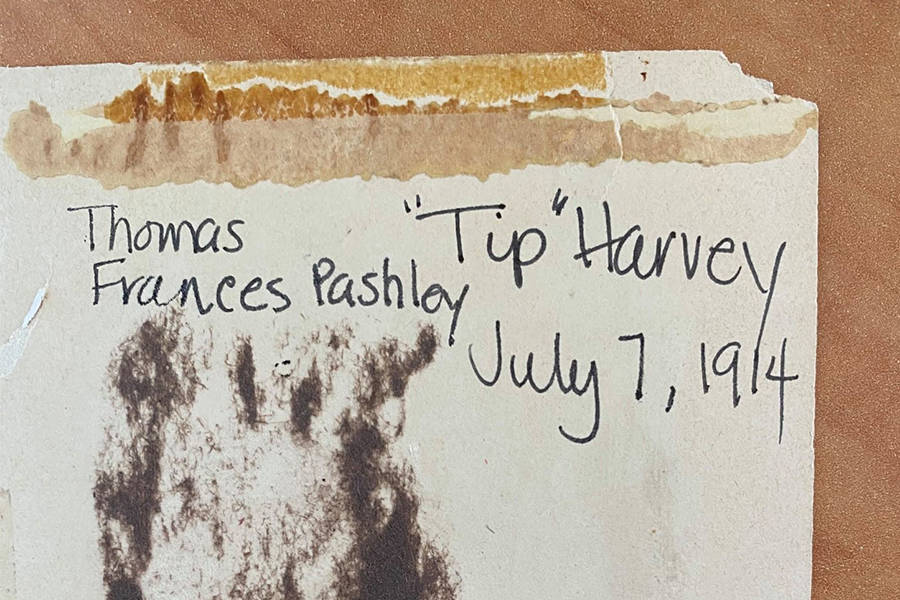 Thomas "Tip" Harvey
Frances Pashley
July 7, 1914